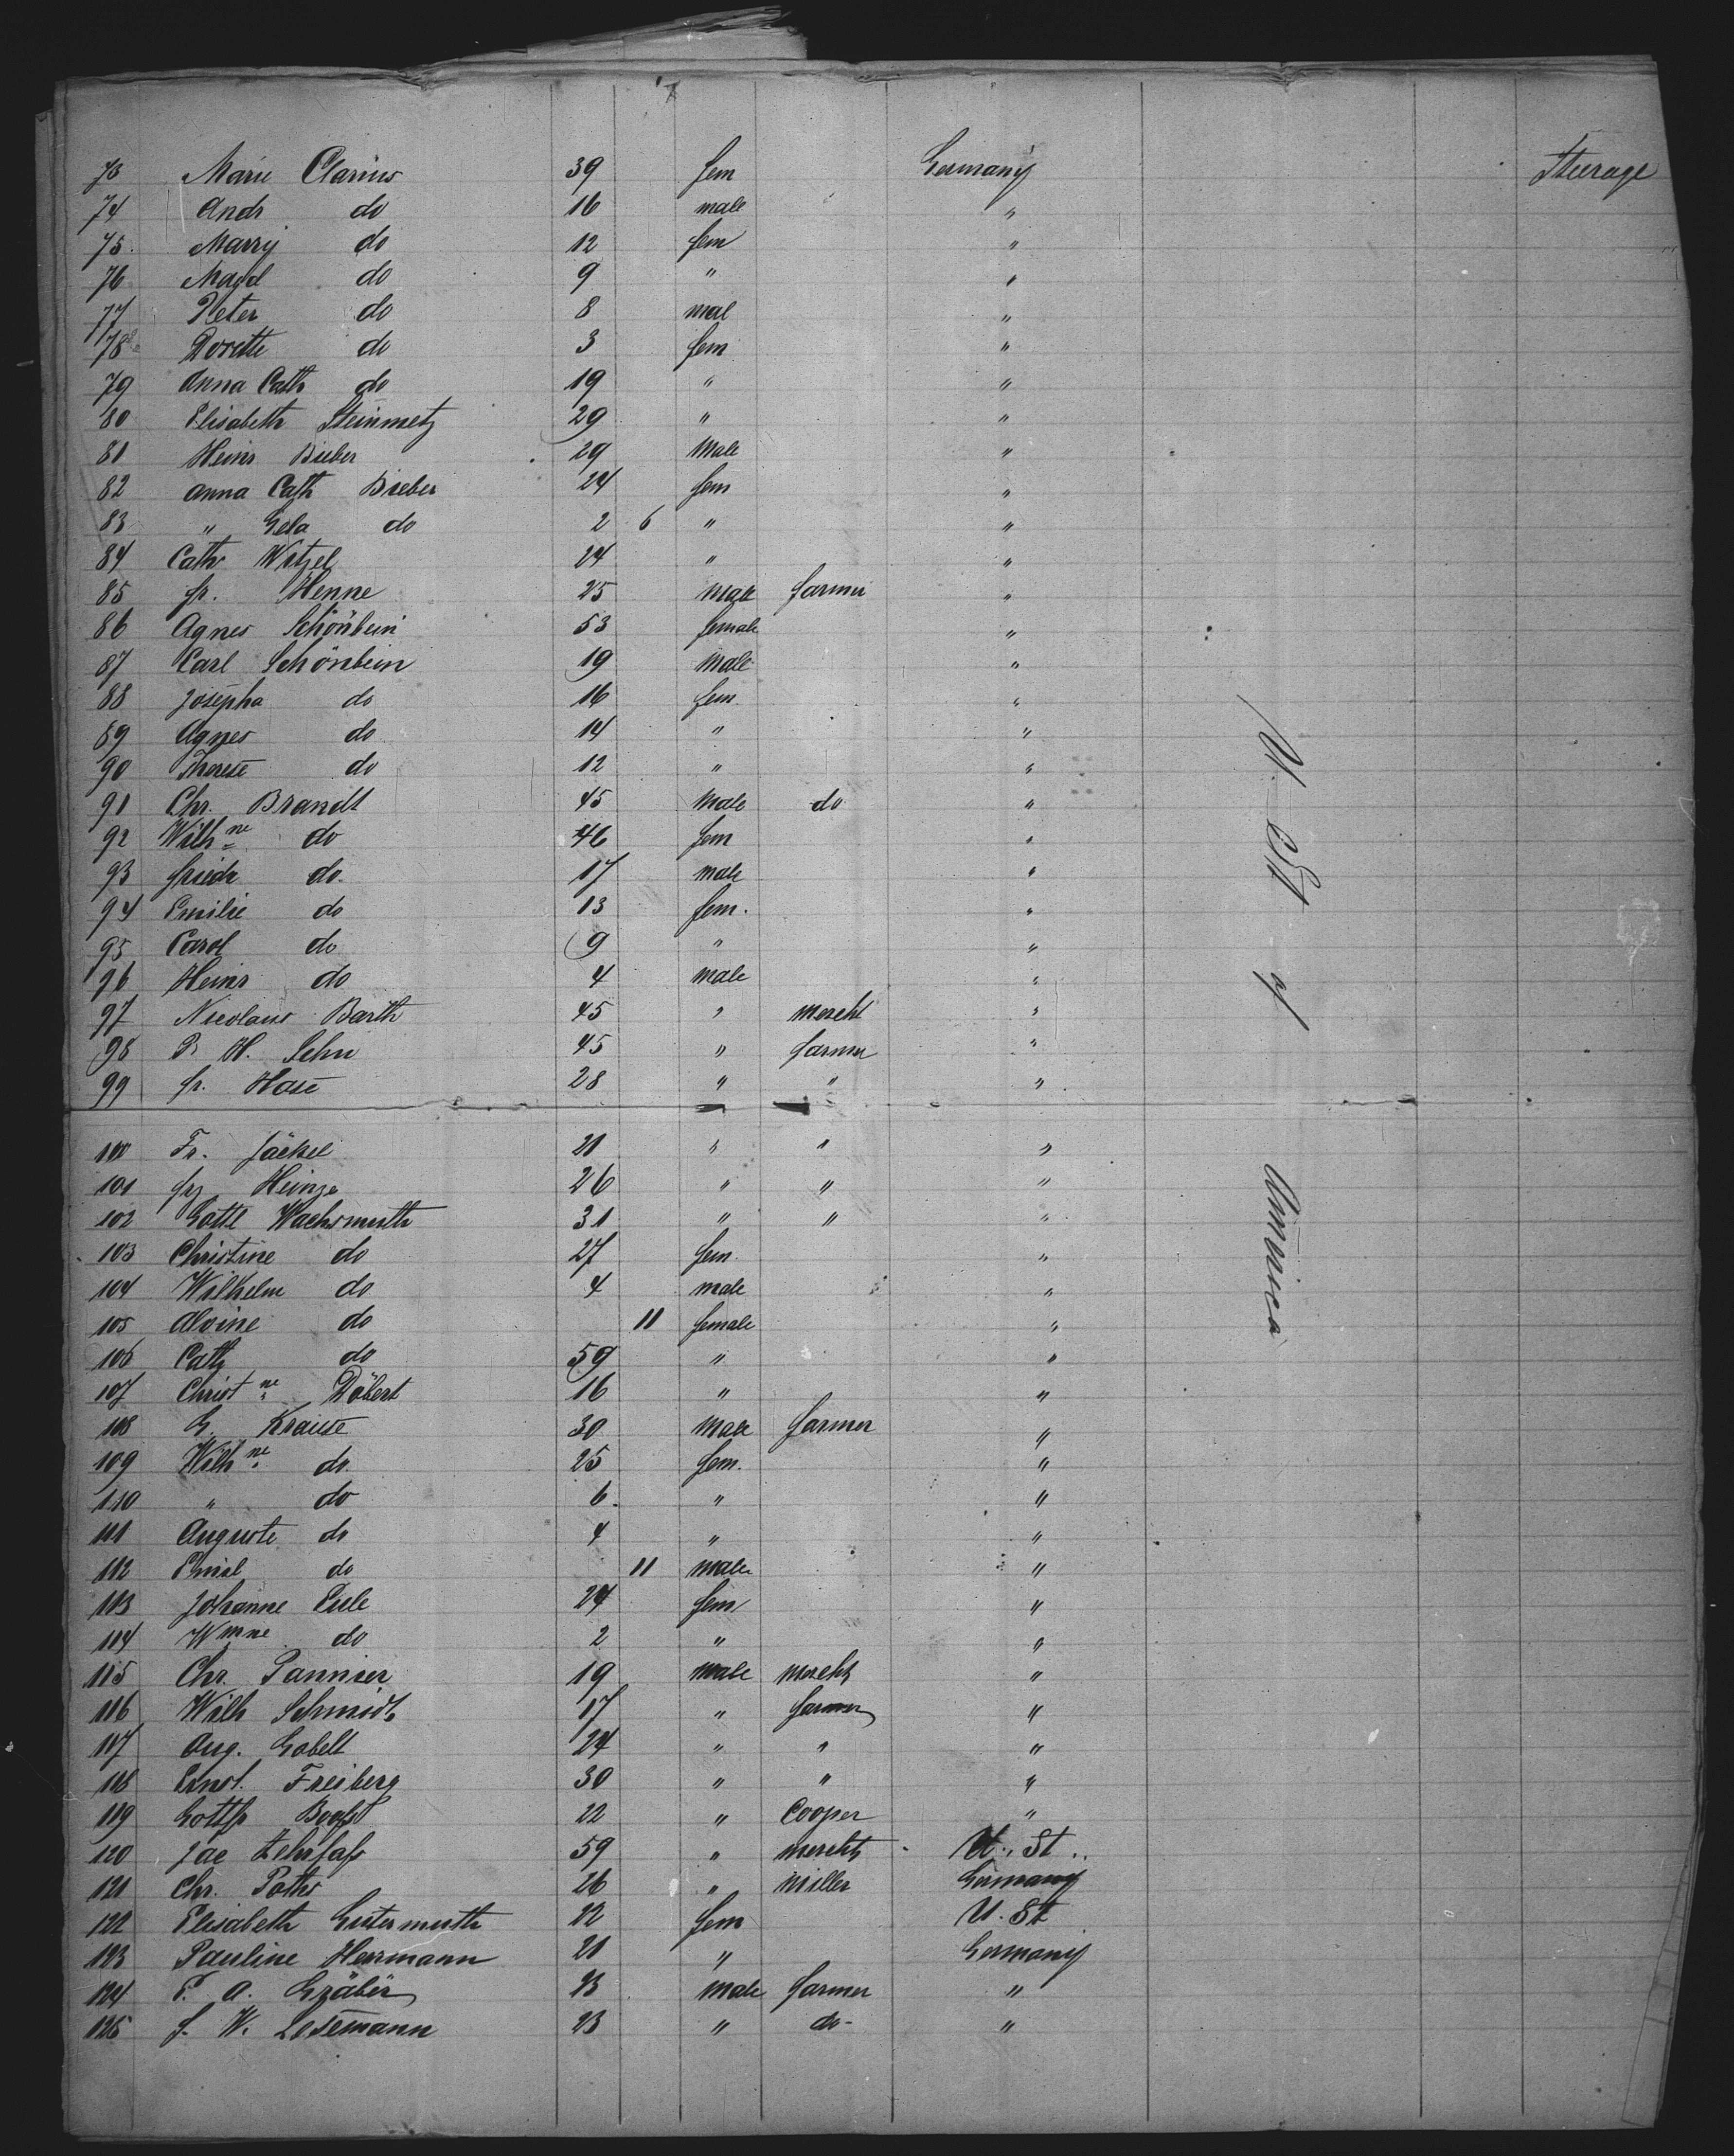 73 Marie Clarius 39 fem Germany Steerage
74 Andr do 16 male "
75. Marry do 12 fem "
76 Magd do 9 " "
77 Peter do 8 mal "
78 Dorette do 3 fem "
79 Anna Cath do 19 " "
80 Elisabeth Steinmetz 29 " "
81 Heinr Bieber 29 Male "
82 Anna Cath Bieber 24 fem "
83 " Gela do 2 6 " "
84 Cath Witzel 24 " "
85 fr. Henne 25 male farmer "
86 Agnes Schönbein 53 female "
87 Carl Schönbein 19 male "
88 Josepha do 16 fem. "
89 Agnes do 14 " "
90 Therese do 12 " "
91 Chr. Brandt 45 Male do "
92 Wilhne do 46 fem "
93 friedr do. 17 male "
94 Emilie do 13 fem. "
95 Carol do 9 " "
96 Heinr do 4 male "
97 Nicolaus Barth 45 " mercht "
98 P. H. Sehn 45 " farmer "
99 fr. Hase 28 " " "
100 Fr. Jäckel 21 " " "
101 frz Heinze 26 " " "
102 Gottl Wachsmuth 31 " " "
103 Christine do 27 fem. "
104 Wilhelm do 4 male "
105 Alvine do 11 female "
106 Cath do 59 " "
107 Christne Döbert 16 " "
108 G. Krause 30 Male farmer "
109 Wilhne do. 25 fem. "
110 " do 6. " "
111 Auguste do 4 " "
112 Emil do 11 male "
113 Johanne Eule 24 fem "
114 Wmne do 2 " "
115 Chr. Pannier 19 male mercht "
116 Wilh Schmidt 17 " farmer "
117 Aug. Gobelt 24 " " "
118 Ernst. Freiberg 30 " " "
119 Gottfr 22 " Cooper "
120 Jac 59 " mercht U. St.
121 Chr. Poths 26 " Miller Germany
122 Elisabeth Gutermuth 22 fem U. St
123 Pauline Herrmann 21 " Germany
124 F. A. Gräber 23 male farmer "
125 f. W. Lesemann 23 " do- "
U. St of America